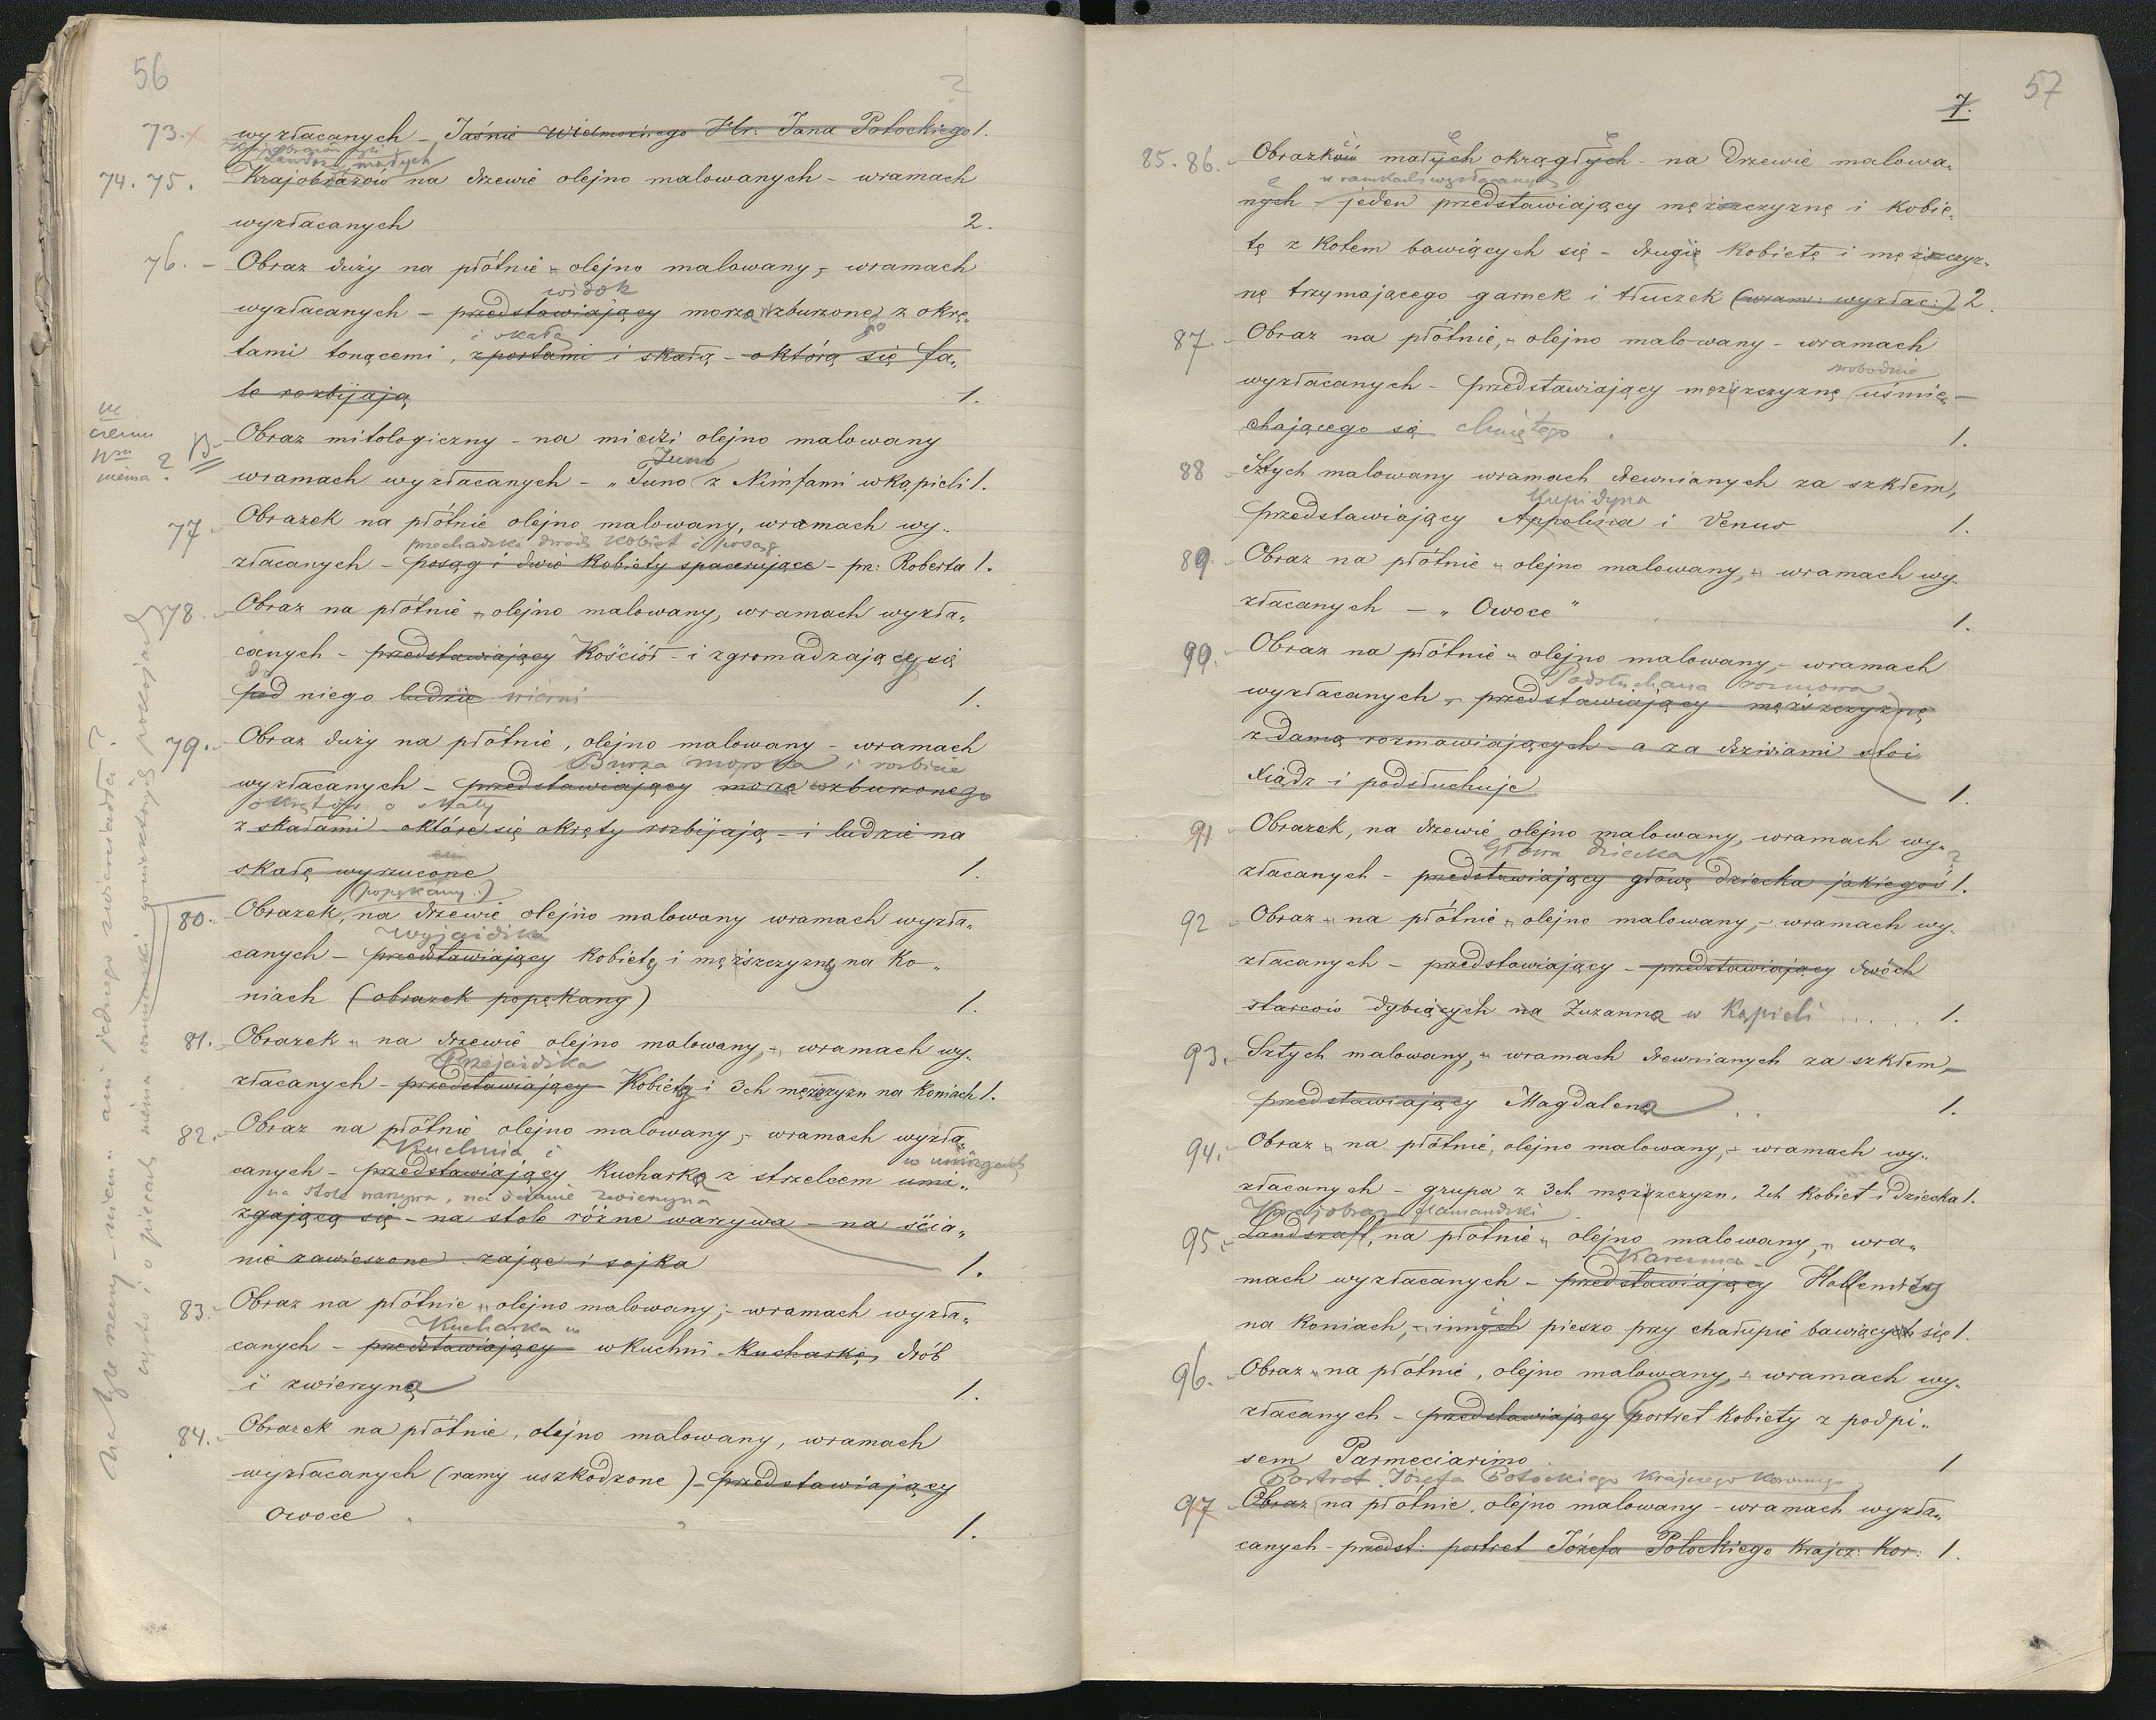 56
73. wyzłacanych – Jaśnie Wielmożnego Hr. Jana Potockiego 1.
małych
74. 75. Krajobrazów na drzewie olejno malowanych – wramach
wyzłacanych 2.
76. – Obraz duży na płótnie – olejno malowany, – wramach
widok
wyzłacanych – przedstawiający morze wzburzone z okrę„
i skałą
tami tonącemi, zportami i skałą – októrą się fa„
le rozbijają 1.
B. Obraz mitologiczny – na miedzi olejno malowany
Juno
wramach wyzłacanych – „Juno z Nimfami wkąpieli 1.
77 Obrazek na płótnie olejno malowany, wramach wy„
przechadzka dwóch kobiet i posąg
złacanych – posąg i dwie Kobiety spacerujące – pr: Roberta 1.
78. Obraz na płótnie – olejno malowany, wramach wyzła„
canych – przedstawiający Kościół – i zgromadzający się
do
pod niego ludzie wierni 1.
79. Obraz duży na płótnie, olejno malowany – wramach
Burza morska i rozbicie
wyzłacanych – przedstawiający morze wzburzonego
okrętów o skały
z skałami – októre się okręty rozbijają – i ludzie na
skałę wyrzucone 1.
(popękany.)
80. Obrazek, na drzewie olejno malowany wramach wyzła„
Wyjażdżka
canych – przedstawiający Kobietę i męższczyznę na Ko„
niach (obrazek popękany) 1.
81. Obrazek – na drzewie olejno malowany, – wramach wy„
Przejażdżka
złacanych – przedstawiający Kobietę i 3ch mężczyzn na Koniach 1.
82. Obraz na płótnie olejno malowany, – wramach wyzła„
Kuchnia i
canych – przedstawiający Kucharkę z strzelcem umi„
w umizgach
na stole warzywa, na ścianie zwierzyna
zgającą się – na stole różne warzywa – na ścia„
nie zawieszone zając i sojka 1.
83. Obraz na płótnie – olejno malowany, – wramach wyzła„
Kucharka w
canych – przedstawiający wKuchni Kucharkę, drób
i zwierzynę 1.
84. Obrazek na płótnie, olejno malowany, wramach
wyzłacanych (ramy uszkodzone) – przedstawiający
owoce 1.
Na tyle mamy – niema ani jednego zwierciadła?
57
7.
85. 86. Obrazków małych okrągłych – na drzewie malowa„
w ramkach wyzłacanych
nych – jeden przedstawiający męższczyznę i Kobie„
tę z Kotem bawiących się – drugie Kobietę i męższczyz„
nę trzymającego garnek i tłuczek (wram: wyzłac:) 2.
87. Obraz na płótnie, – olejno malowany – wramach
wyzłacanych – przedstawiający męższczyznę uśmie„
chającego się 1.
88 Sztych malowany wramach drewnianych za szkłem,
Kupidyna
przedstawiający Appolina i Venus 1.
89. Obraz na płótnie – olejno malowany, – wramach wy„
złacanych – „Owoce” 1.
90. Obraz na płótnie – olejno malowany, – wramach
Podsłuchana rozmowa
wyzłacanych – przedstawiający męższczyznę
z damą rozmawiających – a za drzwiami stoi
Xiądz i podsłuchuje 1.
91 Obrazek, na drzewie olejno malowany, wramach wy„
Głowa dziecka
złacanych – przedstawiający głowę dziecka jakiegoś 1.
92 Obraz – na płótnie – olejno malowany, – wramach wy„
złacanych – przedstawiający – przedstawiający dwóch
starców dybiących na Zuzannę w Kąpieli . . . . . 1.
93. Sztych malowany, – wramach drewnianych za szkłem, –
przedstawiający Magdalenę . . 1.
94. Obraz – na płótnie, olejno malowany, – wramach wy„
złacanych – grupa z 3ch męższczyzn, 2ch Kobiet i dziecka 1.
Krajobraz flamandzki
95. Landszaft, na płótnie – olejno malowany, – wra„
Karczma
mach wyzłacanych – przedstawiający Hollendrzy
na Koniach, – innych pieszo przy chałupie bawiących się 1.
96. Obraz – na płótnie, olejno malowany, – wramach wy„
złacanych – przedstawiający portret Kobiety z podpi„
sem Parmeciarimo 1
Portret Józefa Potockiego Krajczego Koronnego
97 Obraz na płótnie, olejno malowany – wramach wyzła„
canych – przedst: portret Józefa Potockiego Krajcz: Kor: 1.